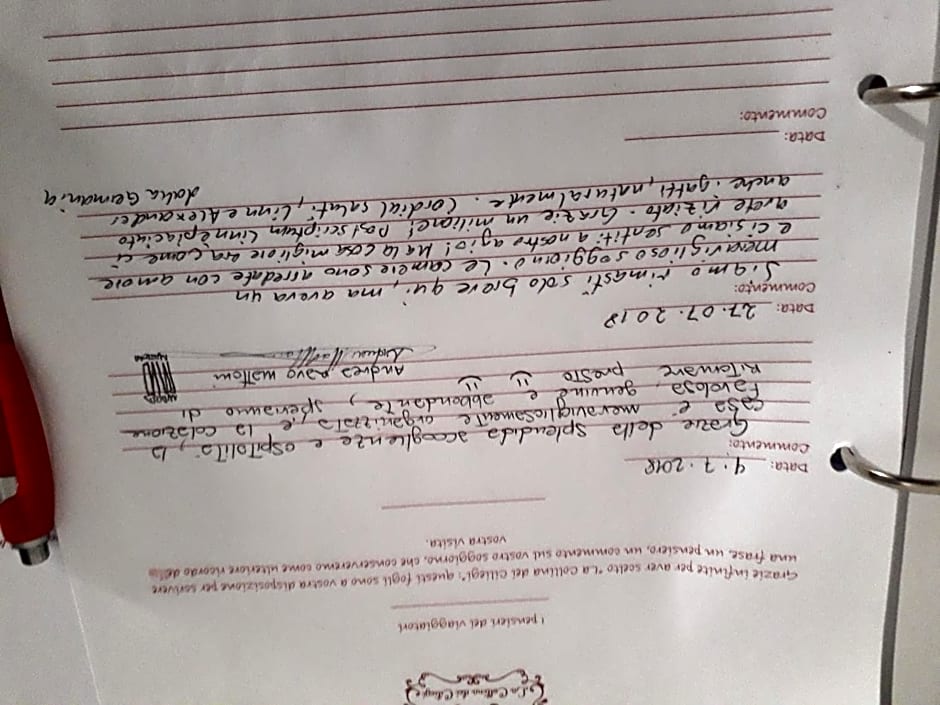 La Collina dei Ciliegi
I pensieri dei viaggiatori
Grazie infinite per aver scelto "La Collina dei Ciliegi"; questi fogli sono a vostra disposizione per scrivere
una frase, un pensiero, un commento sul vostro soggiorno, che conserveremo come ulteriore ricordo della
vostra visita.
Data: 4.7.2018
Commento:
Grazie della splendida accoglienze e ospitalità, la
casa è meravigliosamente organizzata, e la colazione
favolosa, genuina e abondante, speriamo di
ritornare presto
Andrea
27.07.2018
Data:
Commento:
Siamo rimasti solo breve qui, ma avava un
meraviglioso soggiorno. Le camere sono arredate con amore
e ci siamo sentiti a nostro agio! Ma la cosa migliore era, come ci
avete viziato. Grazie un milione! Postscriptum Linn è piaciuto
anche i gatti, naturalmente. Cordiali saluti, Linn e Alexander
dalla Germania
Data:
Commento: